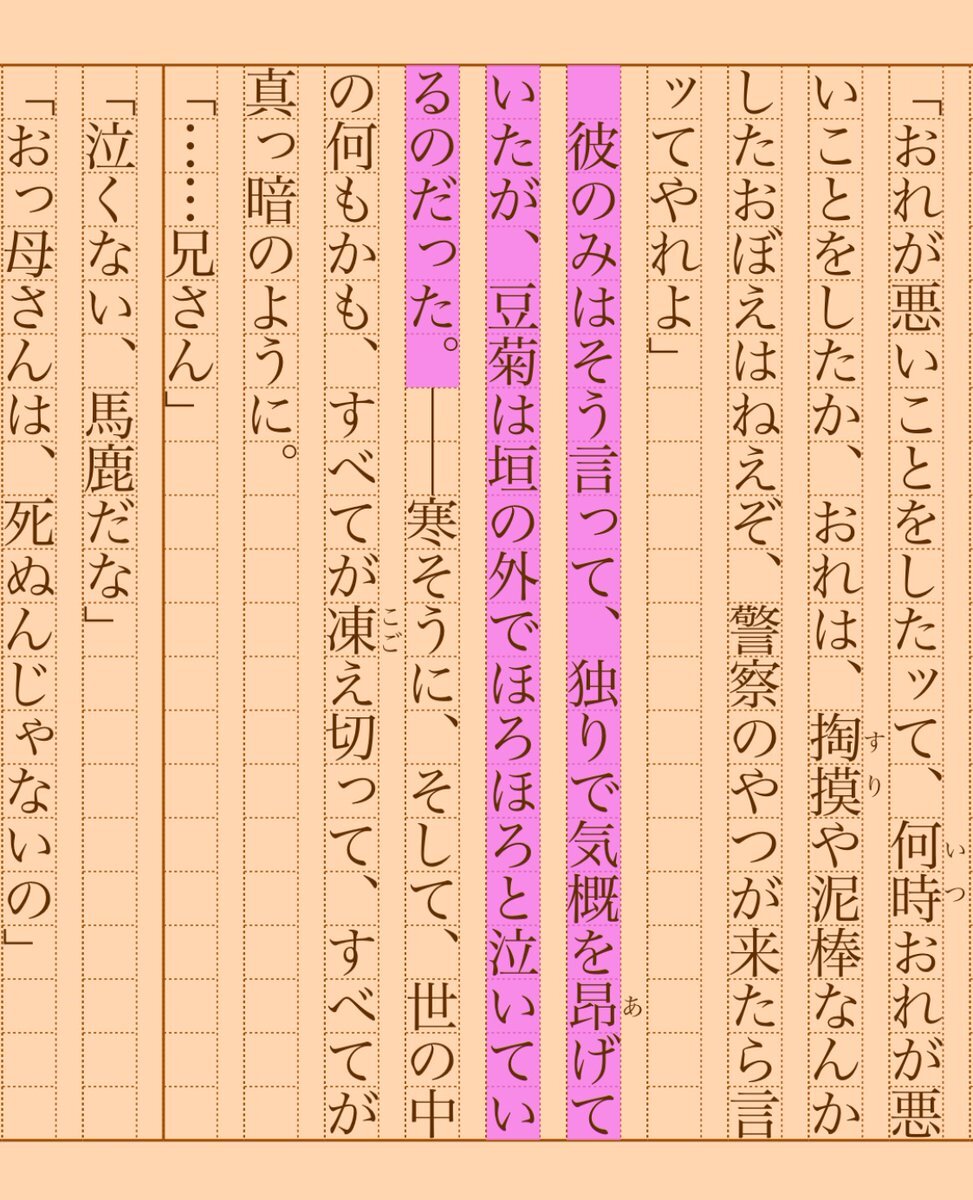 「おれが悪いことをしたッて、何時おれが悪
いことをしたか、おれは、掏摸や泥棒なんか
したおぼえはねえぞ、警察のやつが来たら言
ッてやれよ」
　彼のみはそう言って、独りで気概を昂げて
いたが、豆菊は垣の外でほろほろと泣いてい
るのだった。――寒そうに、そして、世の中
の何もかも、すべてが凍え切って、すべてが
真っ暗のように。
「……兄さん」
「泣くない、馬鹿だな」
「おっ母さんは、死ぬんじゃないの」